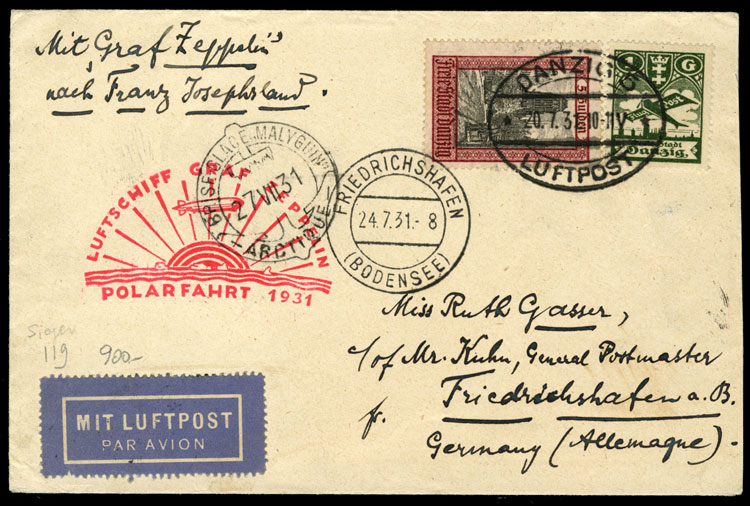 Mit Graf Zeppelin
nach Franz Josephsland.
5 Gulden
Freie Stadt Danzig
1 G
Stadt
Danzig.
DANZIG 5
* 20.7.31.10-11V *
LUFTPOST
BRISE-GLACE „MALYGUIN"
27 VII 31
ARCTIQUE
FRIEDRICHSHAFEN
24.7.31.-8
(BODENSEE)
LUFTSCHIFF GRAF ZEPPELIN
POLARFAHRT 1931
Sieger
119 900.-
Miss Ruth Gasser,
c/of Mr. Kuhn, General Postmaster
Friedrichshafen a. B.
fr.
Germany (Allemagne).
MIT LUFTPOST
PAR AVION